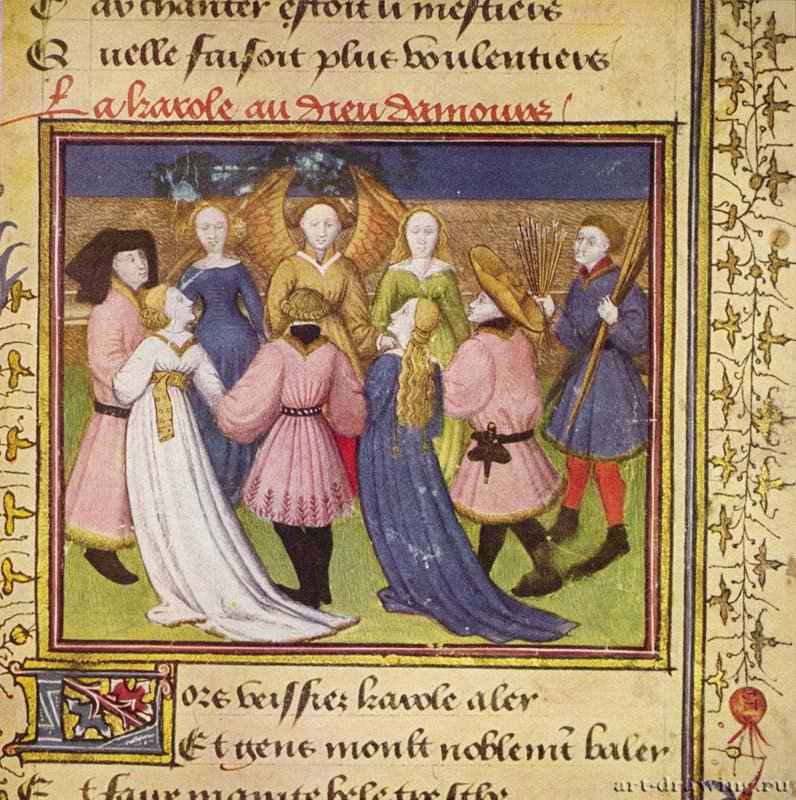 av chanter estoit li mestiers
Q uelle faisoit plus voulentiers
La karole au dieu damours
Lors veissiez karole aler
Et gens moult noblemt baler
Et faire mainte bele tresche
art-drawing.ru